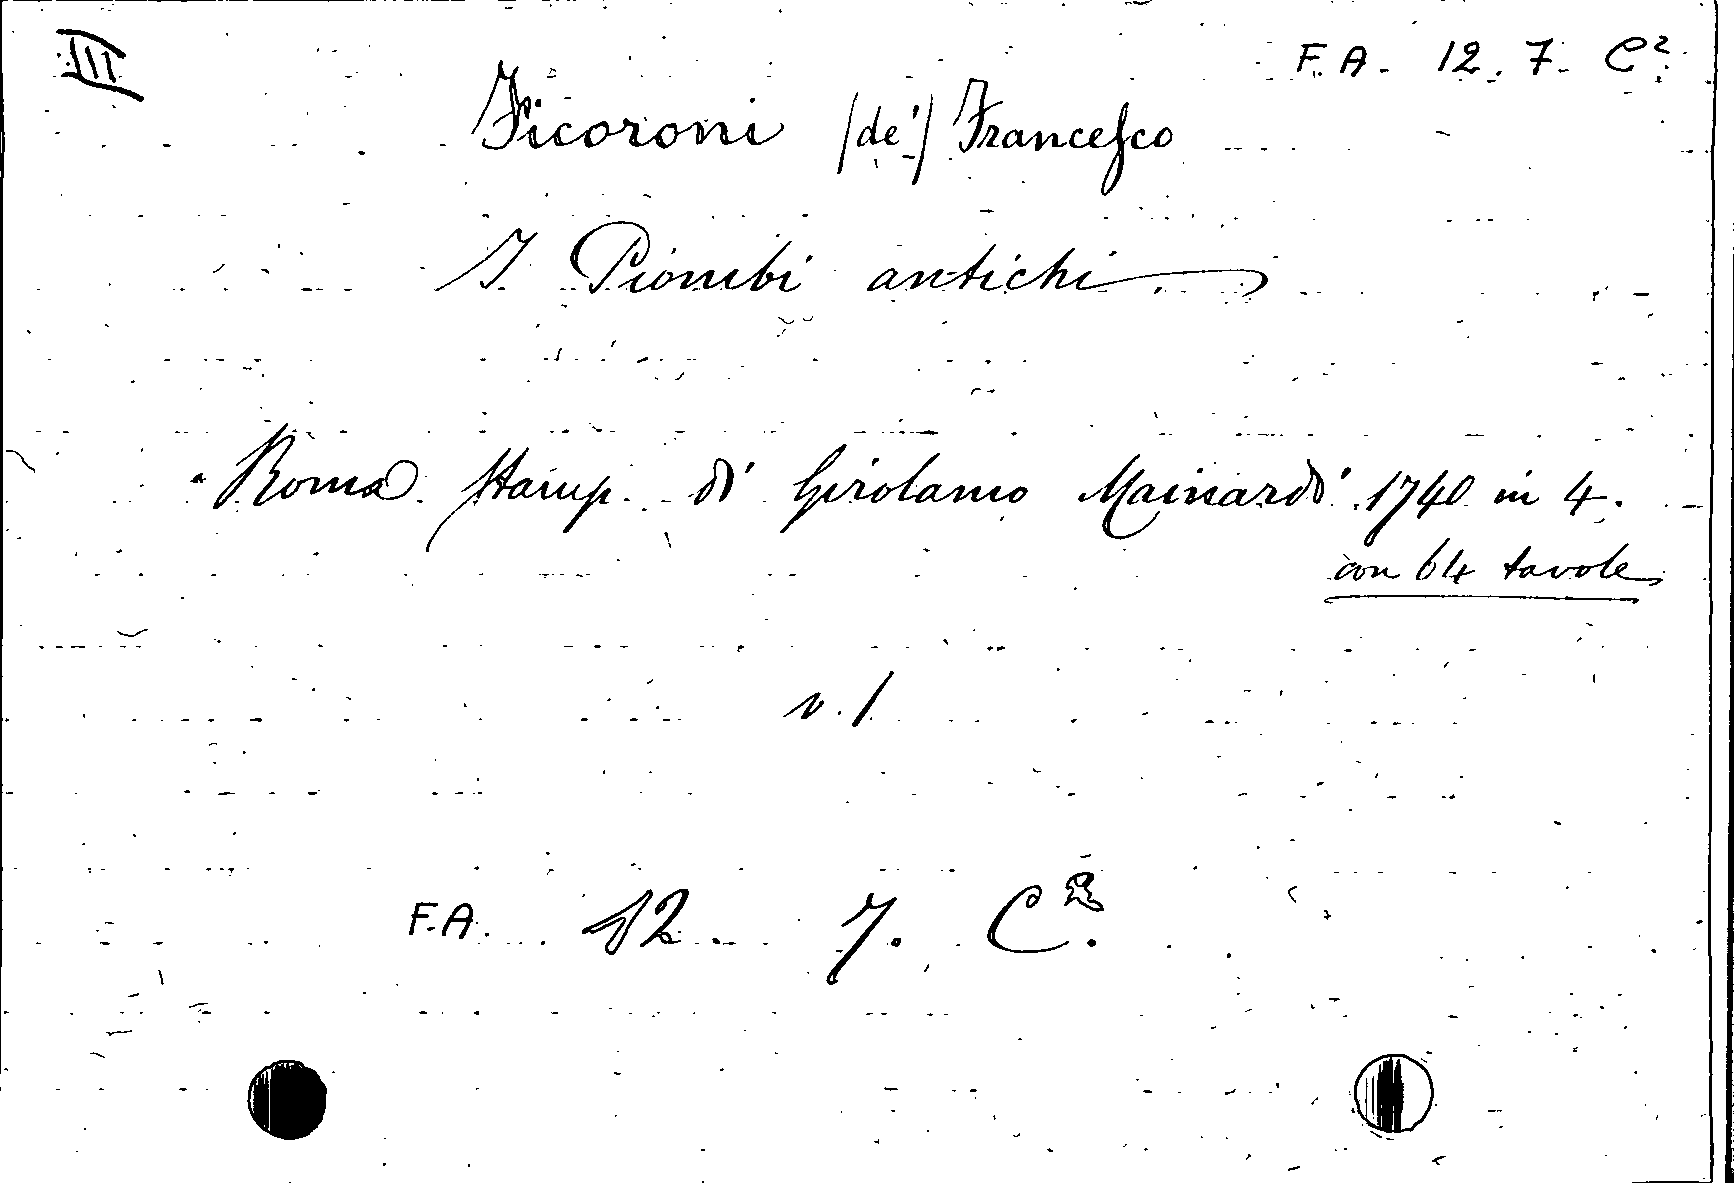 III
F. A. 12. 7. C²
Ficoroni (de') Francesco
I Piombi antichi
Roma. Stamp. di Girolamo Mainardi 1740 in 4.
con 64 tavole
v. 1
F. A. 12 7. C².